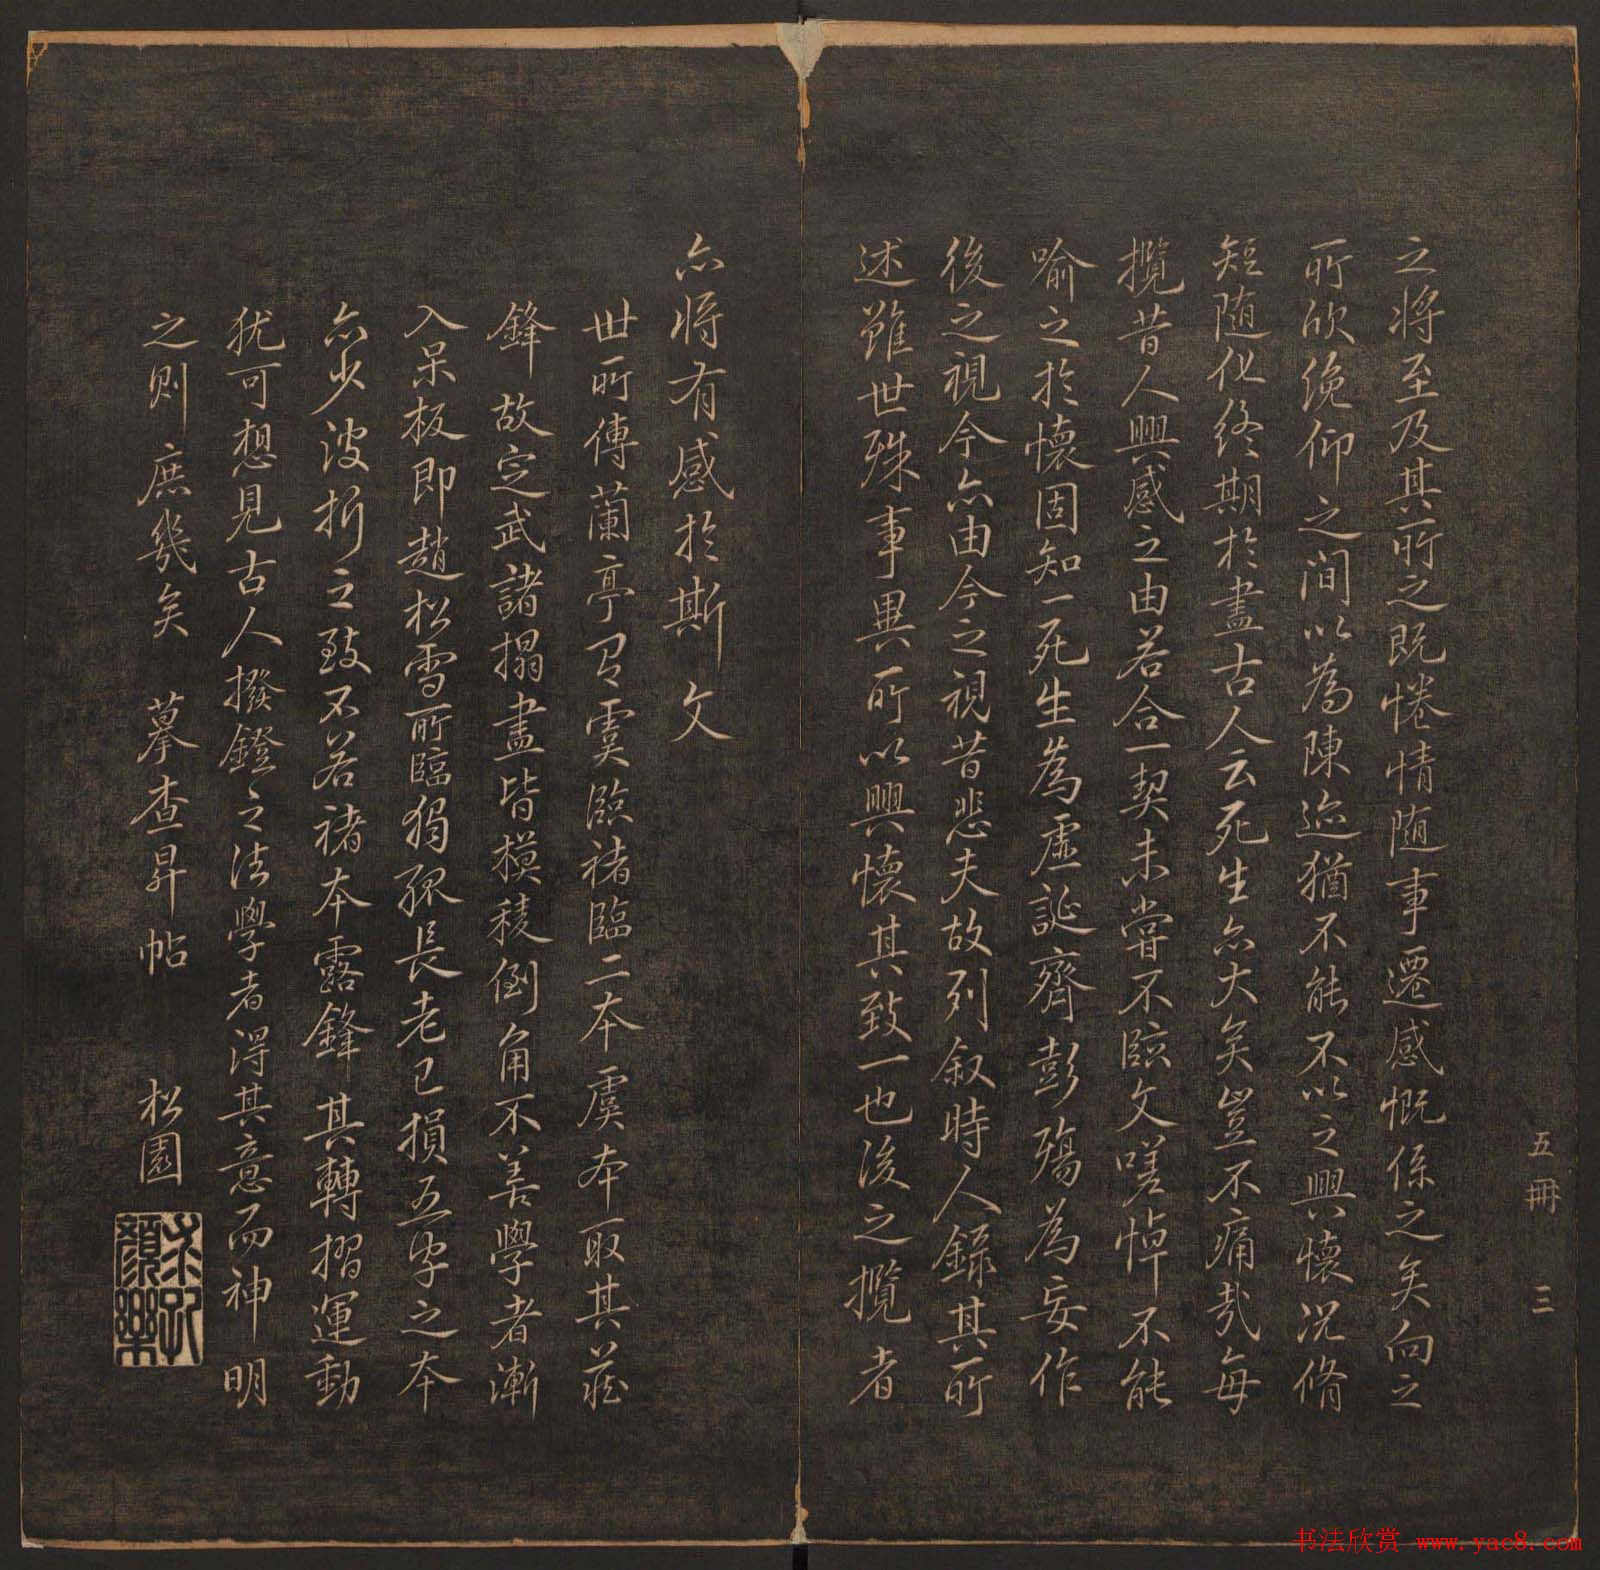 五冊 三
之將至及其所之既惓情隨事遷感慨係之矣向之
所欣俛仰之間以為陳迹猶不能不以之興懷況脩
短隨化終期於盡古人云死生亦大矣豈不痛哉每
攬昔人興感之由若合一契未嘗不臨文嗟悼不能
喻之於懷固知一死生為虛誕齊彭殤為妄作
後之視今亦由今之視昔悲夫故列叙時人錄其所
述雖世殊事異所以興懷其致一也後之攬者
亦將有感於斯文
世所傳蘭亭有虞臨褚臨二本虞本取其藏
鋒故定武諸搨盡皆模稜倒角不善學者漸
入呆板即趙松雪所臨獨孤長老已損五字之本
亦少波折之致不若褚本露鋒其轉摺運動
猶可想見古人撥鐙之法學者得其意而神明
之則庶幾矣 摹查昇帖 松園
書法欣賞 www.yac8.com